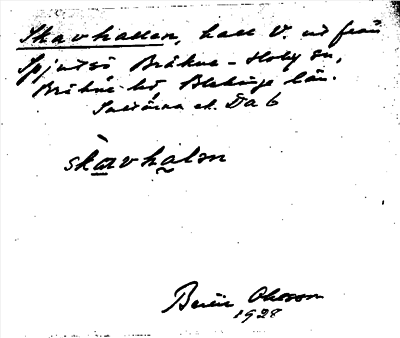 Skavhallen, hall V. ut från
Spjutsö Bräkne-Hoby sn,
Bräkne hd Blekinge län.
ek. Da 6
skavhalən
Olsson
1928